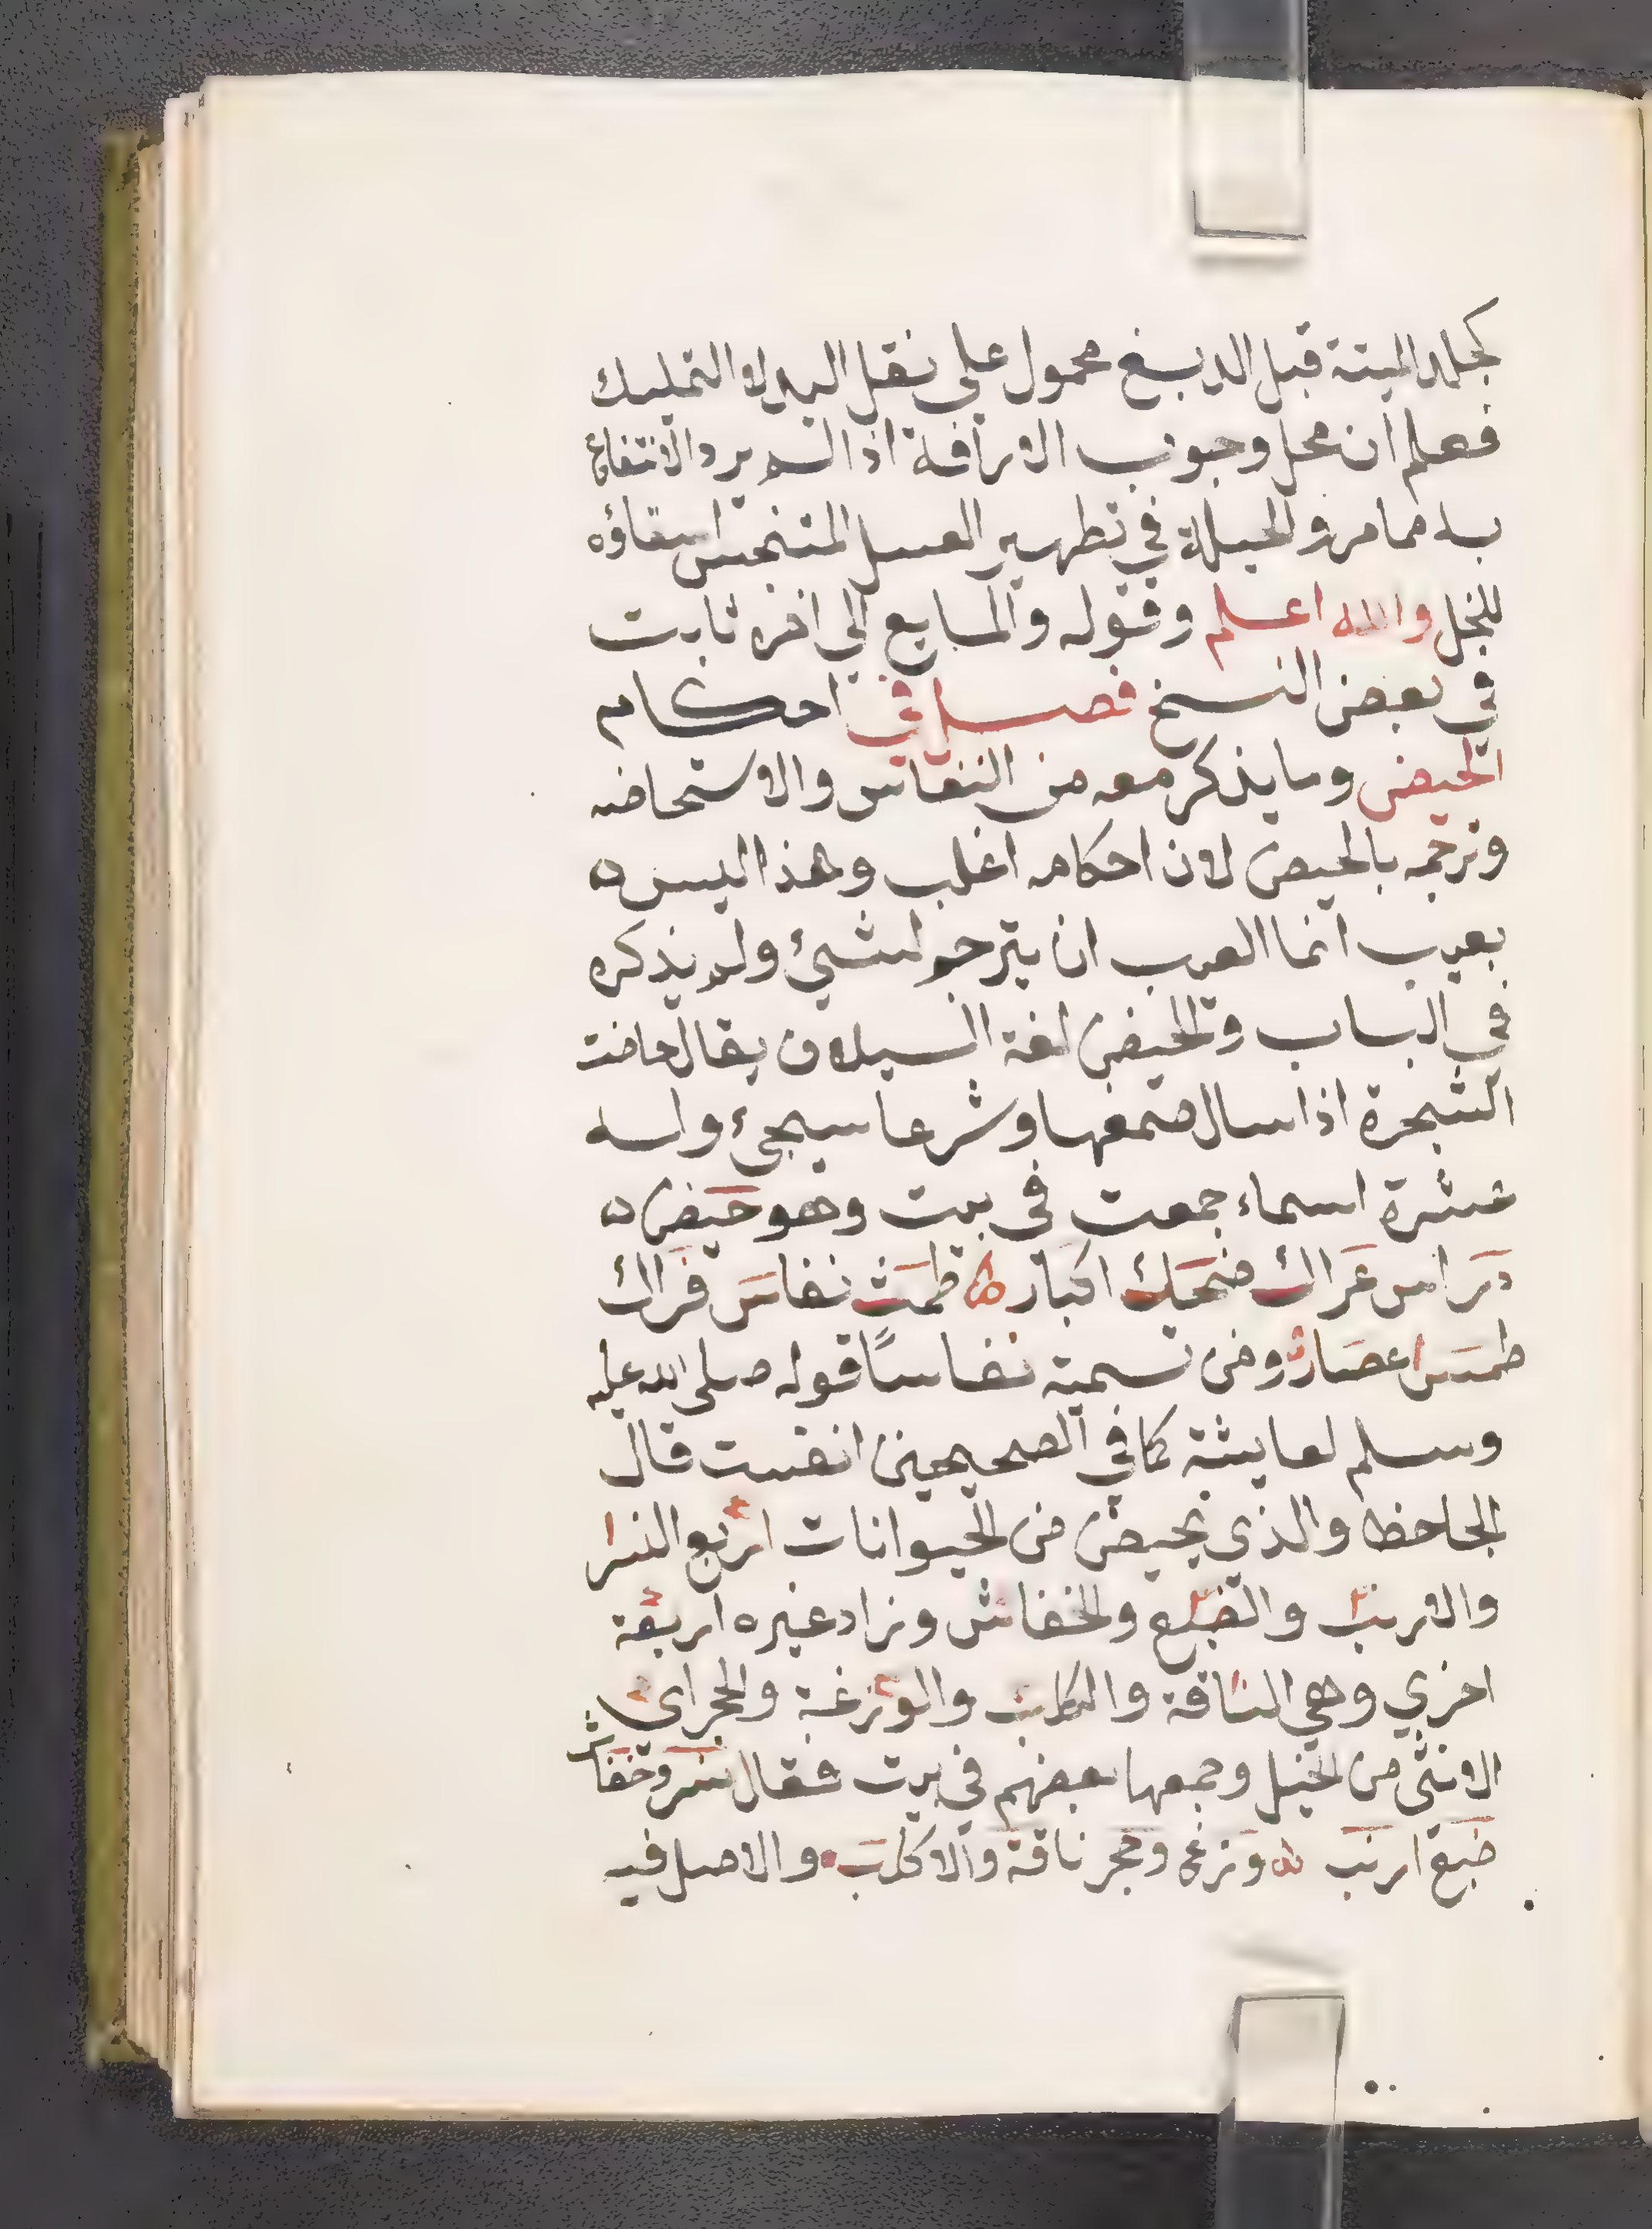 كجلد الميتة قبل الدبغ محمول على نقل اليد لا التمليك
فعلم ان محل وجوب الاراقة اذا لم يرد الانتفاع
به مما مر والحيلة في تطهير العسل المتنجس اسقاؤه
للنحل والله اعلم وقوله والمايع الي اخره ثابت
في بعض النسخ فصل في احكام
الحيض وما يذكر معه من النفاس والاستحاضه
وترجم بالحيض لان احكامه اغلب وهذا ليس ه
بعيب انما العيب ان يترجم لشيئ ولم يذكره
في الباب والحيض لغة السيلان يقال حاضت
الشجرة اذا سال صمغها وشرعا سيجيء وله
عشرة اسماء جمعت في بيت وهو حيض ه
دراس عراك ضحك اكبار طمث نفاس فراك
طمس اعصار ومن تسمية نفاسًا قوله صلى الله عليه
وسلم لعايشة كما في الصحيحين انفست قال
الجاحظ والذي يحيض من الحيوانات اربع النسا
والارنب والضبع والخفاش وزاد غيره اربعة
اخري وهي الناقة والكلب والوزغة والحجر اي
الانثى من الخيل وجمعها بعضهم في بيت فقال نسر وخفاش
ضبع ارنب وزغ وحجر ناقة والاكلب والاصل فيه